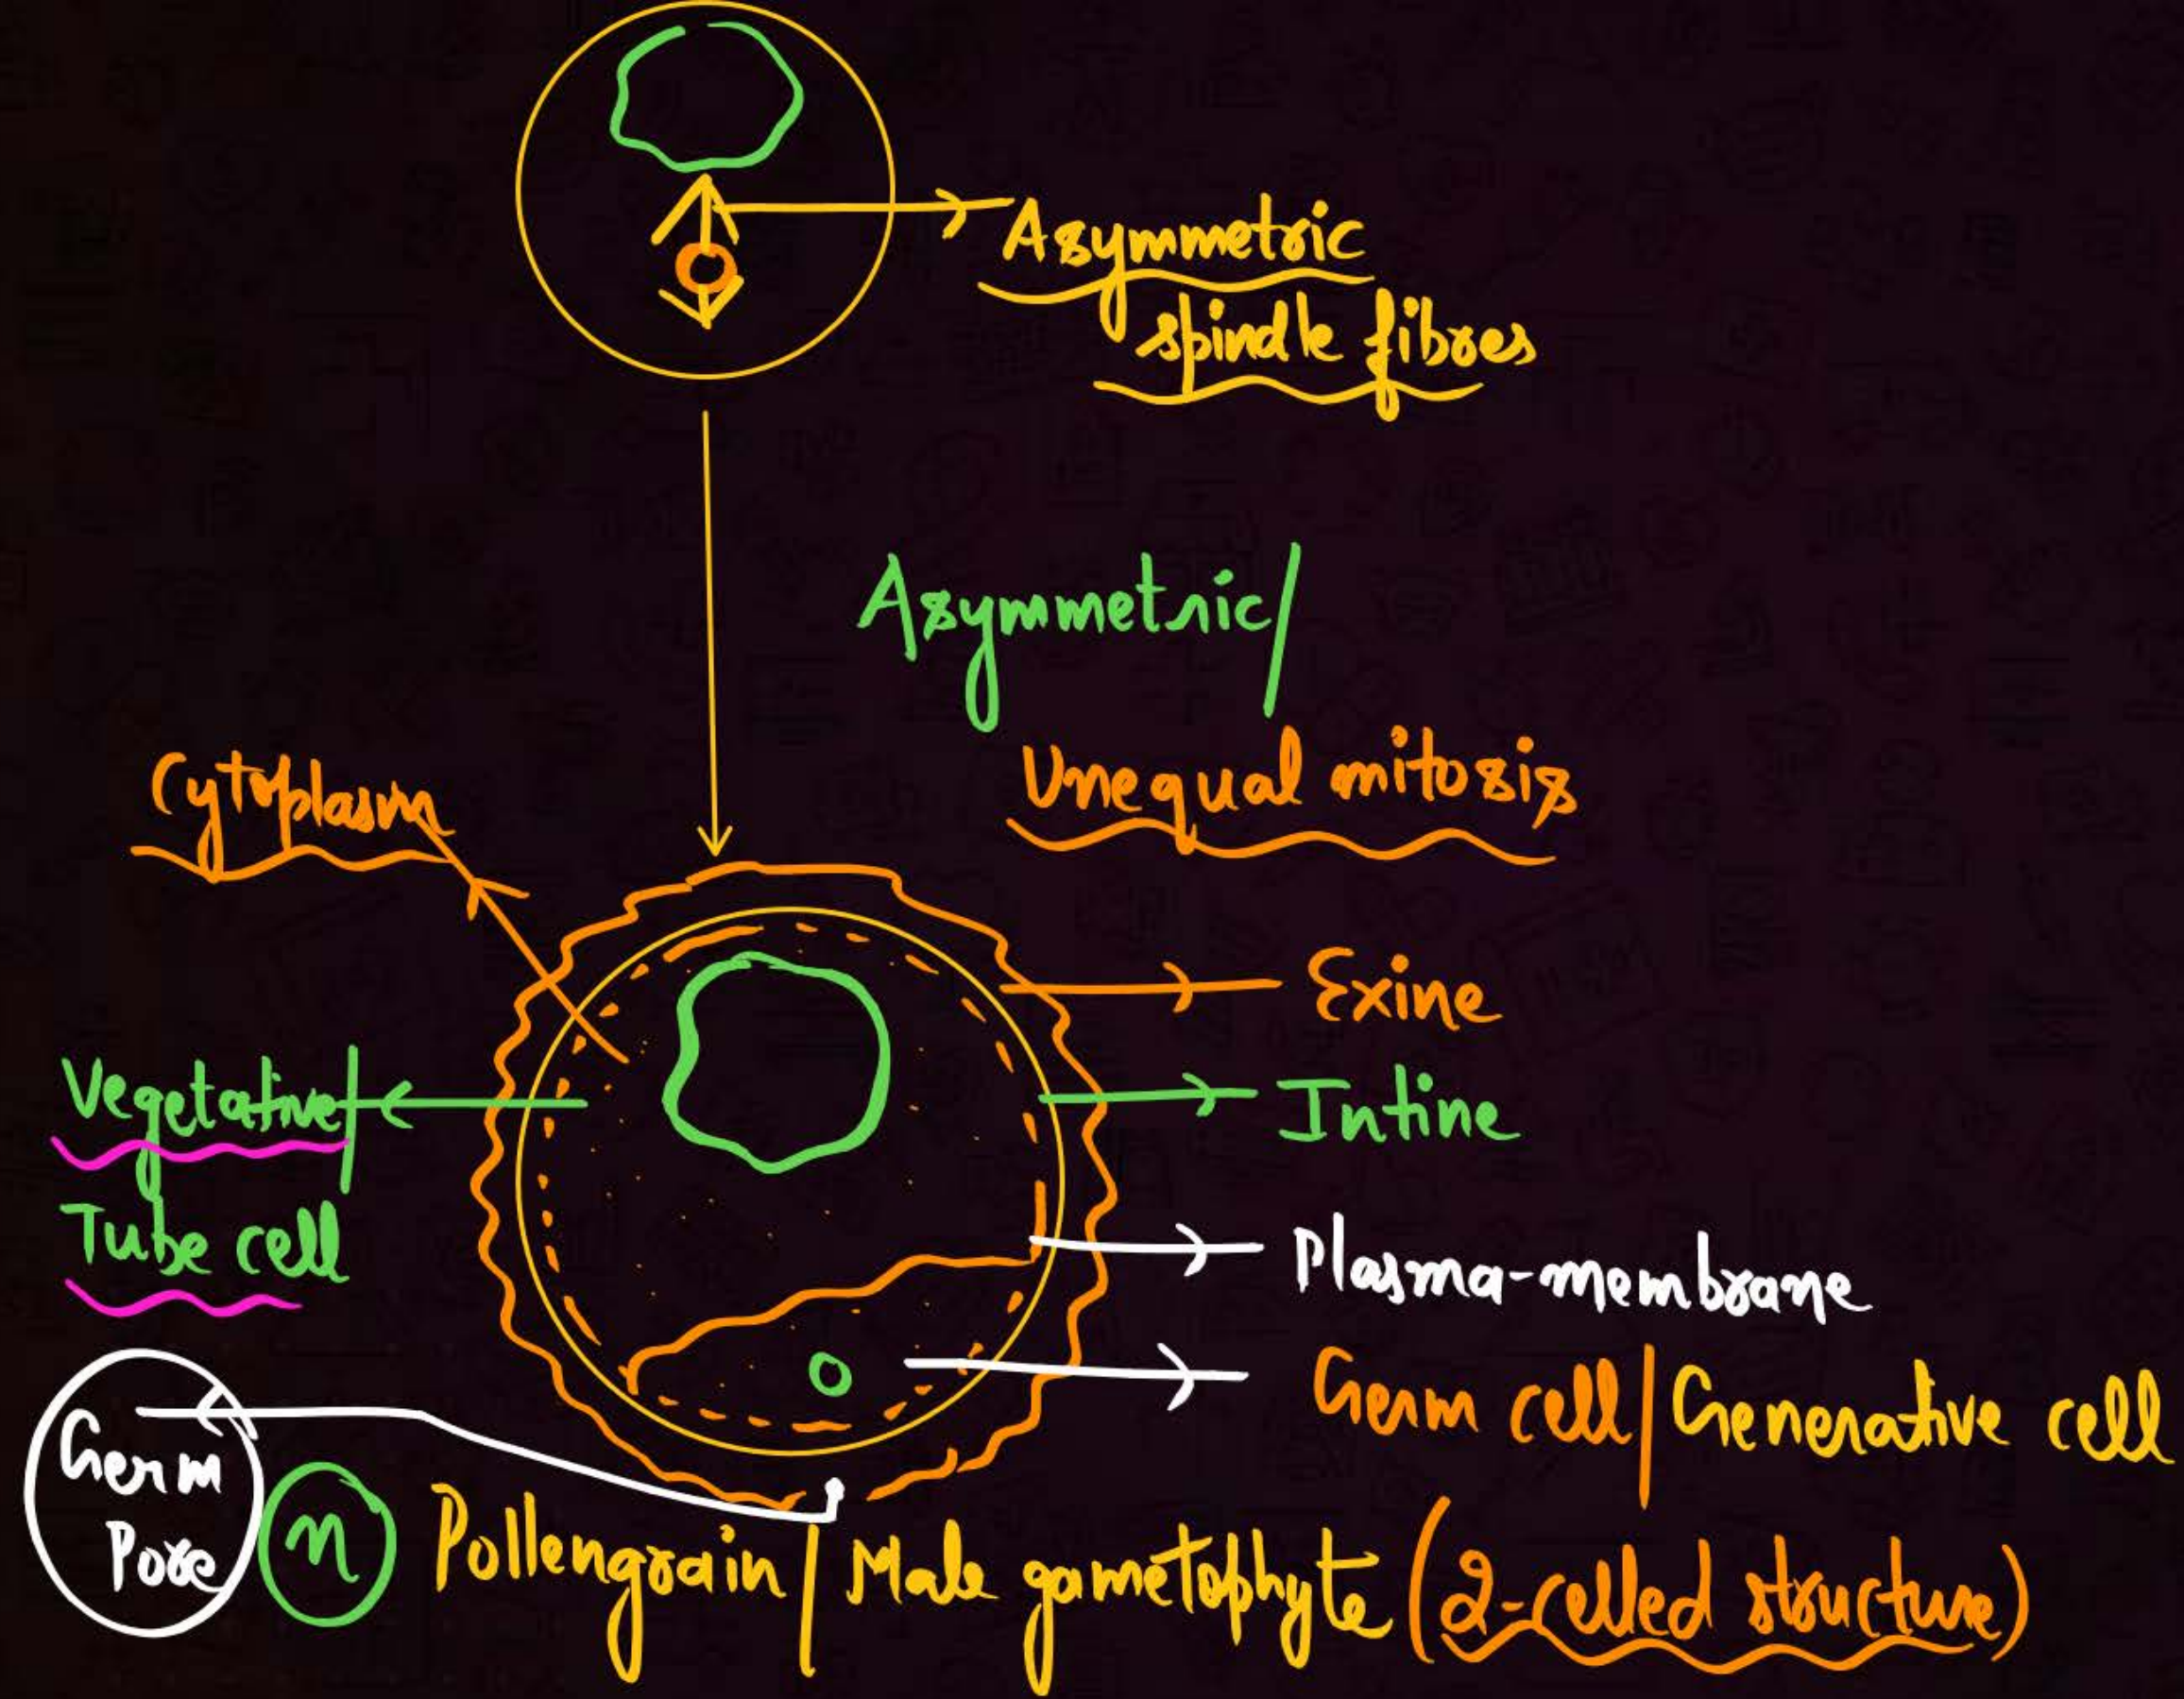 Asymmetric
spindle fibres
Asymmetric/
Unequal mitosis
Cytoplasm
Exine
Vegetative/
Tube cell
Intine
Plasma-membrane
Germ cell/Generative cell
Germ
Pore
n
Pollengrain/Male gametophyte (2-celled structure)